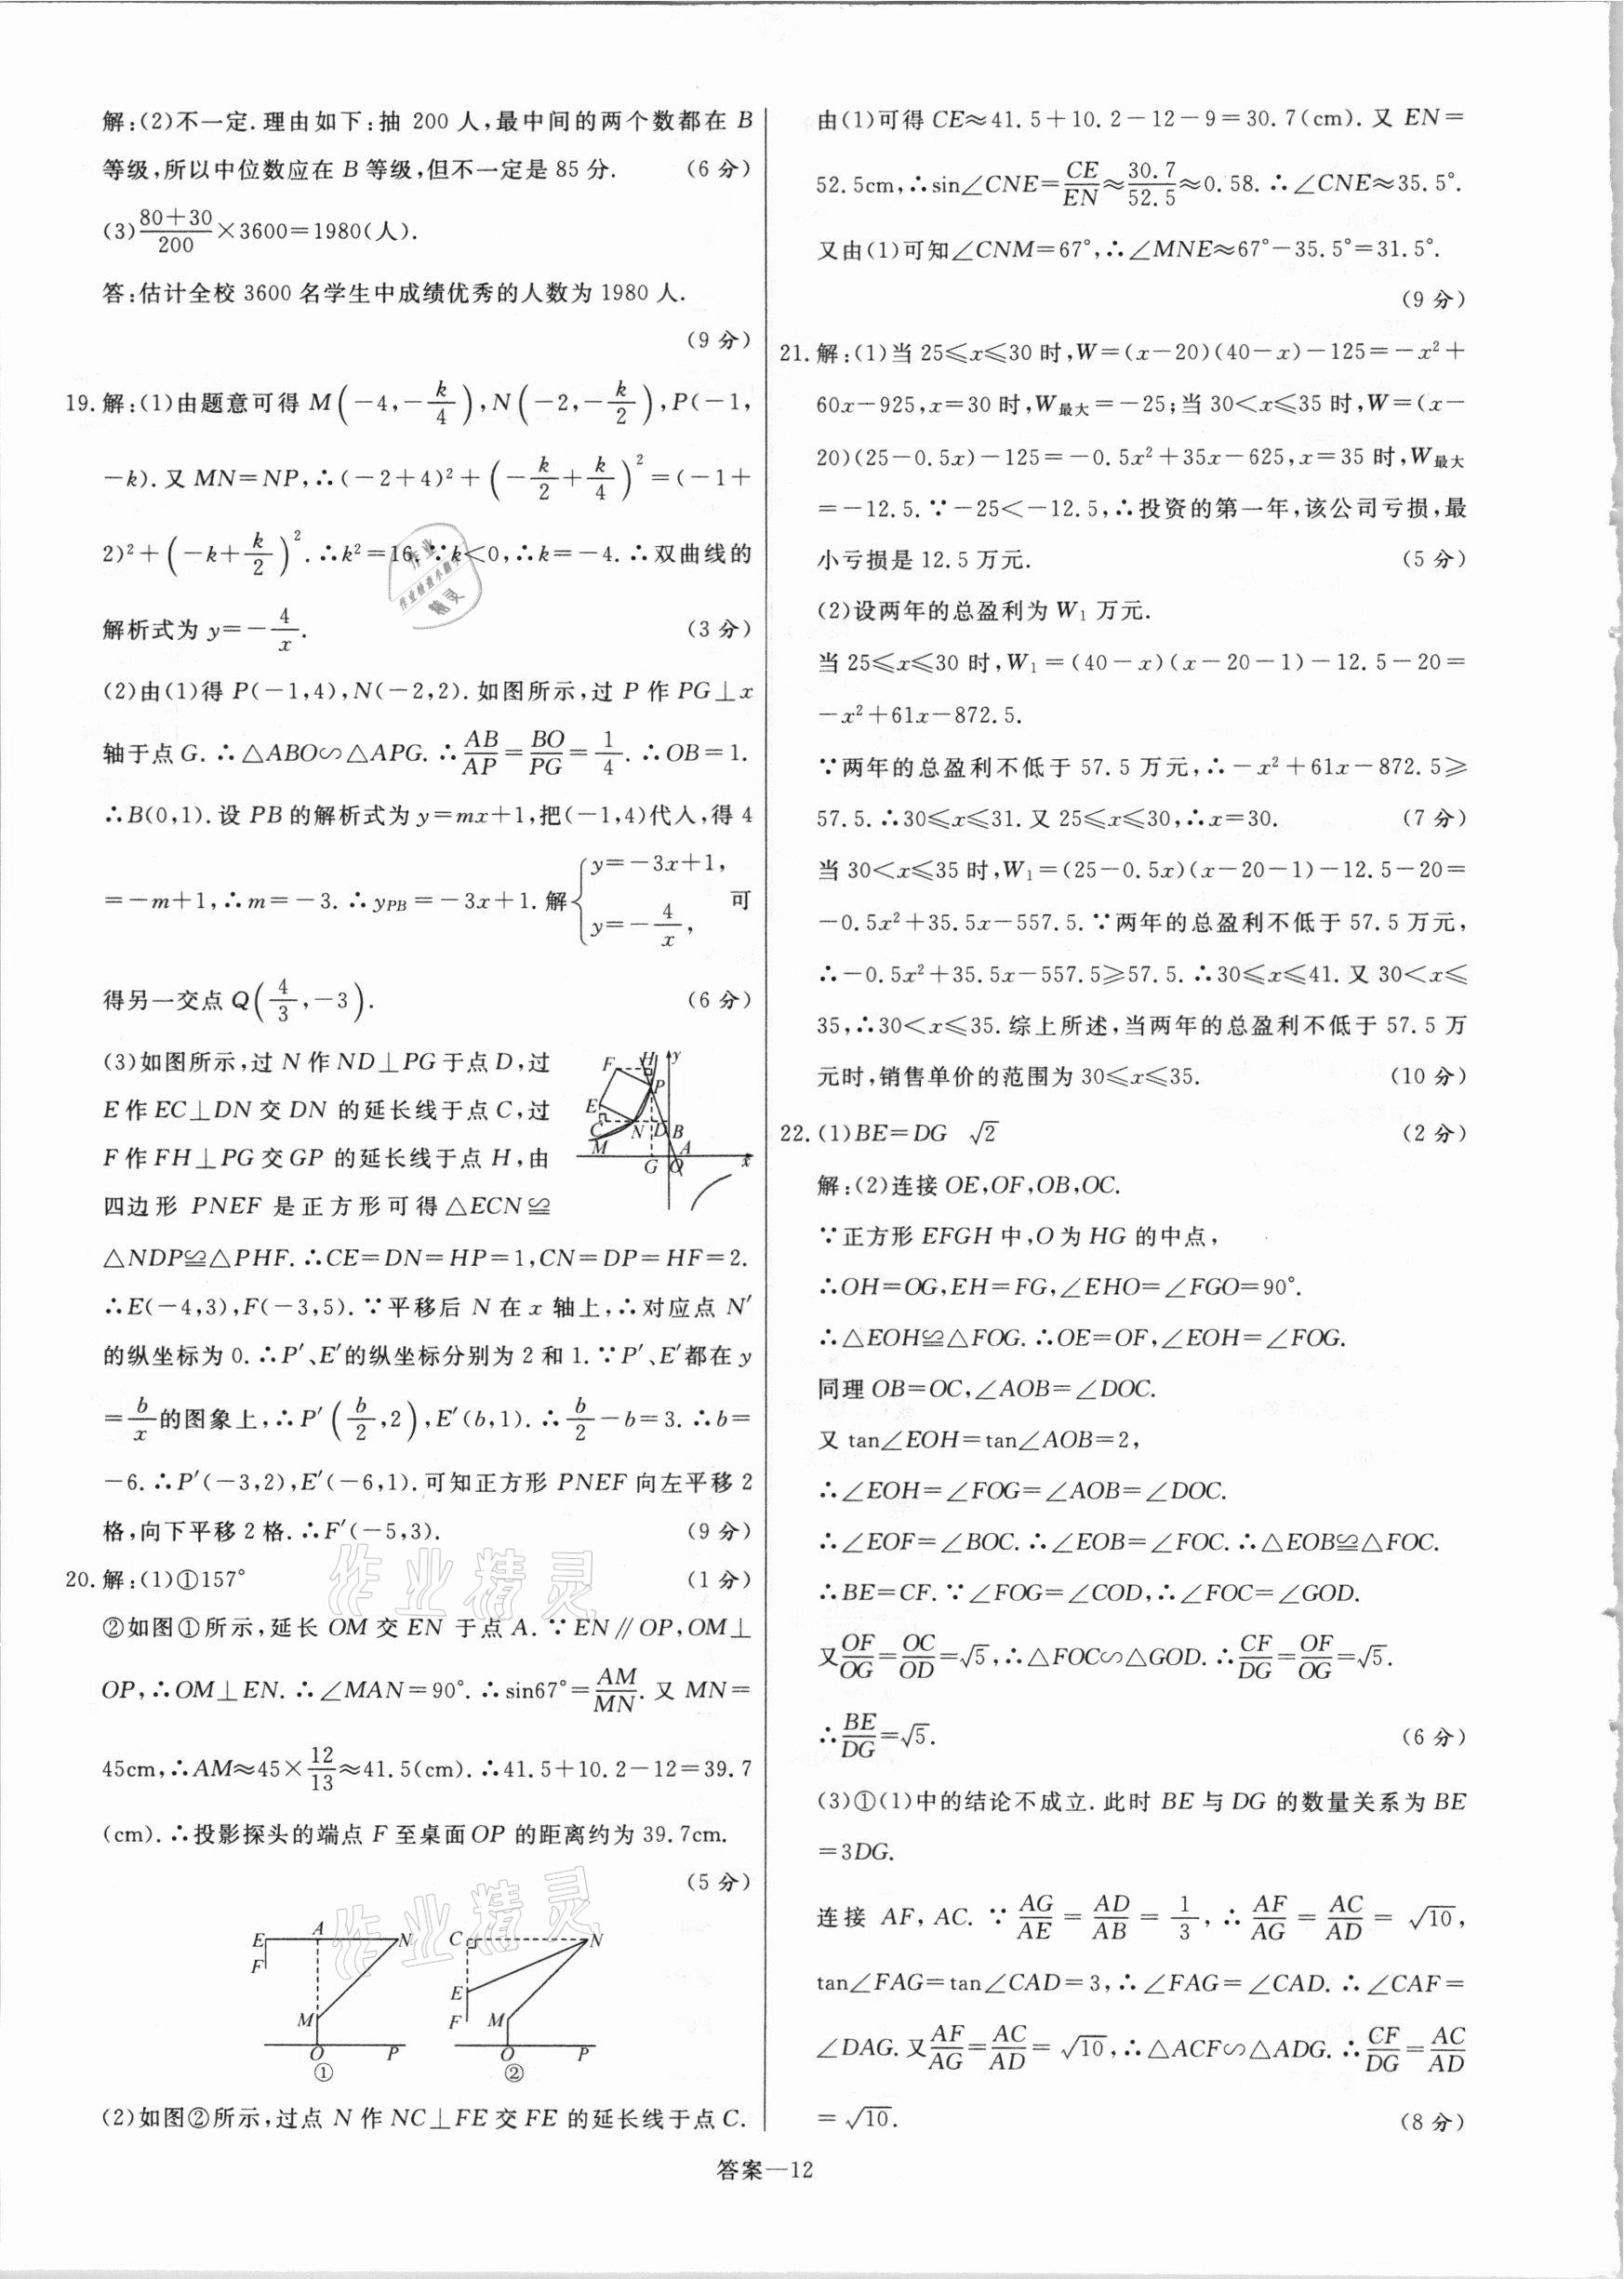 解:(2)不一定.理由如下:抽 200 人,最中间的两个数都在 B
等级,所以中位数应在 B 等级,但不一定是 85 分. (6 分)
(3)\frac{80+30}{200}×3600=1980(人).
答:估计全校 3600 名学生中成绩优秀的人数为 1980 人.
(9 分)
19.解:(1)由题意可得 M(-4,-\frac{k}{4}),N(-2,-\frac{k}{2}),P(-1,
-k).又 MN=NP,∴(-2+4)²+(-\frac{k}{2}+\frac{k}{4})²=(-1+
2)²+(-k+\frac{k}{2})².∴k²=16,∵k<0,∴k=-4.∴双曲线的
解析式为 y=-\frac{4}{x}. (3 分)
(2)由(1)得 P(-1,4),N(-2,2).如图所示,过 P 作 PG⊥x
轴于点 G.∴△ABO∽△APG.∴\frac{AB}{AP}=\frac{BO}{PG}=\frac{1}{4}.∴OB=1.
∴B(0,1).设 PB 的解析式为 y=mx+1,把(-1,4)代人,得 4
=-m+1,∴m=-3.∴y_{PB}=-3x+1.解{y=-3x+1, y=-\frac{4}{x}, 可
得另一交点 Q(\frac{4}{3},-3). (6 分)
(3)如图所示,过 N 作 ND⊥PG 于点 D,过
E 作 EC⊥DN 交 DN 的延长线于点 C,过
F 作 FH⊥PG 交 GP 的延长线于点 H,由
四边形 PNEF 是正方形可得△ECN≌
F H y P E C N D B M A G O x
△NDP≌△PHF.∴CE=DN=HP=1,CN=DP=HF=2.
∴E(-4,3),F(-3,5).∵平移后 N 在 x 轴上,∴对应点 N′
的纵坐标为 0.∴P′、E′的纵坐标分别为 2 和 1.∵P′、E′都在 y
=\frac{b}{x}的图象上,∴P′(\frac{b}{2},2),E′(b,1).∴\frac{b}{2}-b=3.∴b=
-6.∴P′(-3,2),E′(-6,1).可知正方形 PNEF 向左平移 2
格,向下平移 2 格.∴F′(-5,3). (9 分)
20.解:(1)①157° (1 分)
②如图①所示,延长 OM 交 EN 于点 A.∵EN∥OP,OM⊥
OP,∴OM⊥EN.∴∠MAN=90°.∴sin67°=\frac{AM}{MN}.又 MN=
45cm,∴AM≈45×\frac{12}{13}≈41.5(cm).∴41.5+10.2-12=39.7
(cm).∴投影探头的端点 F 至桌面 OP 的距离约为 39.7cm.
(5 分)
E A N F M O P ①
C N E F M O P ②
(2)如图②所示,过点 N 作 NC⊥FE 交 FE 的延长线于点 C.
由(1)可得 CE≈41.5+10.2-12-9=30.7(cm).又 EN=
52.5cm,∴sin∠CNE=\frac{CE}{EN}≈\frac{30.7}{52.5}≈0.58.∴∠CNE≈35.5°.
又由(1)可知∠CNM=67°,∴∠MNE≈67°-35.5°=31.5°.
(9 分)
21.解:(1)当 25≤x≤30 时,W=(x-20)(40-x)-125=-x²+
60x-925,x=30 时,W最大=-25;当 30<x≤35 时,W=(x-
20)(25-0.5x)-125=-0.5x²+35x-625,x=35 时,W最大
=-12.5.∵-25<-12.5,∴投资的第一年,该公司亏损,最
小亏损是 12.5 万元. (5 分)
(2)设两年的总盈利为 W₁ 万元.
当 25≤x≤30 时,W₁=(40-x)(x-20-1)-12.5-20=
-x²+61x-872.5.
∵两年的总盈利不低于 57.5 万元,∴-x²+61x-872.5≥
57.5.∴30≤x≤31.又 25≤x≤30,∴x=30. (7 分)
当 30<x≤35 时,W₁=(25-0.5x)(x-20-1)-12.5-20=
-0.5x²+35.5x-557.5.∵两年的总盈利不低于 57.5 万元,
∴-0.5x²+35.5x-557.5≥57.5.∴30≤x≤41.又 30<x≤
35,∴30<x≤35.综上所述,当两年的总盈利不低于 57.5 万
元时,销售单价的范围为 30≤x≤35. (10 分)
22.(1)BE=DG √2 (2 分)
解:(2)连接 OE,OF,OB,OC.
∵正方形 EFGH 中,O 为 HG 的中点,
∴OH=OG,EH=FG,∠EHO=∠FGO=90°.
∴△EOH≌△FOG.∴OE=OF,∠EOH=∠FOG.
同理 OB=OC,∠AOB=∠DOC.
又 tan∠EOH=tan∠AOB=2,
∴∠EOH=∠FOG=∠AOB=∠DOC.
∴∠EOF=∠BOC.∴∠EOB=∠FOC.∴△EOB≌△FOC.
∴BE=CF.∵∠FOG=∠COD,∴∠FOC=∠GOD.
又\frac{OF}{OG}=\frac{OC}{OD}=√5,∴△FOC∽△GOD.∴\frac{CF}{DG}=\frac{OF}{OG}=√5.
∴\frac{BE}{DG}=√5. (6 分)
(3)①(1)中的结论不成立.此时 BE 与 DG 的数量关系为 BE
=3DG.
连接 AF, AC. ∵\frac{AG}{AE}=\frac{AD}{AB}=\frac{1}{3},∴\frac{AF}{AG}=\frac{AC}{AD}=√10,
tan∠FAG=tan∠CAD=3,∴∠FAG=∠CAD.∴∠CAF=
∠DAG.又\frac{AF}{AG}=\frac{AC}{AD}=√10,∴△ACF∽△ADG.∴\frac{CF}{DG}=\frac{AC}{AD}
=√10. (8 分)
答案—12
作业精灵
作业精灵